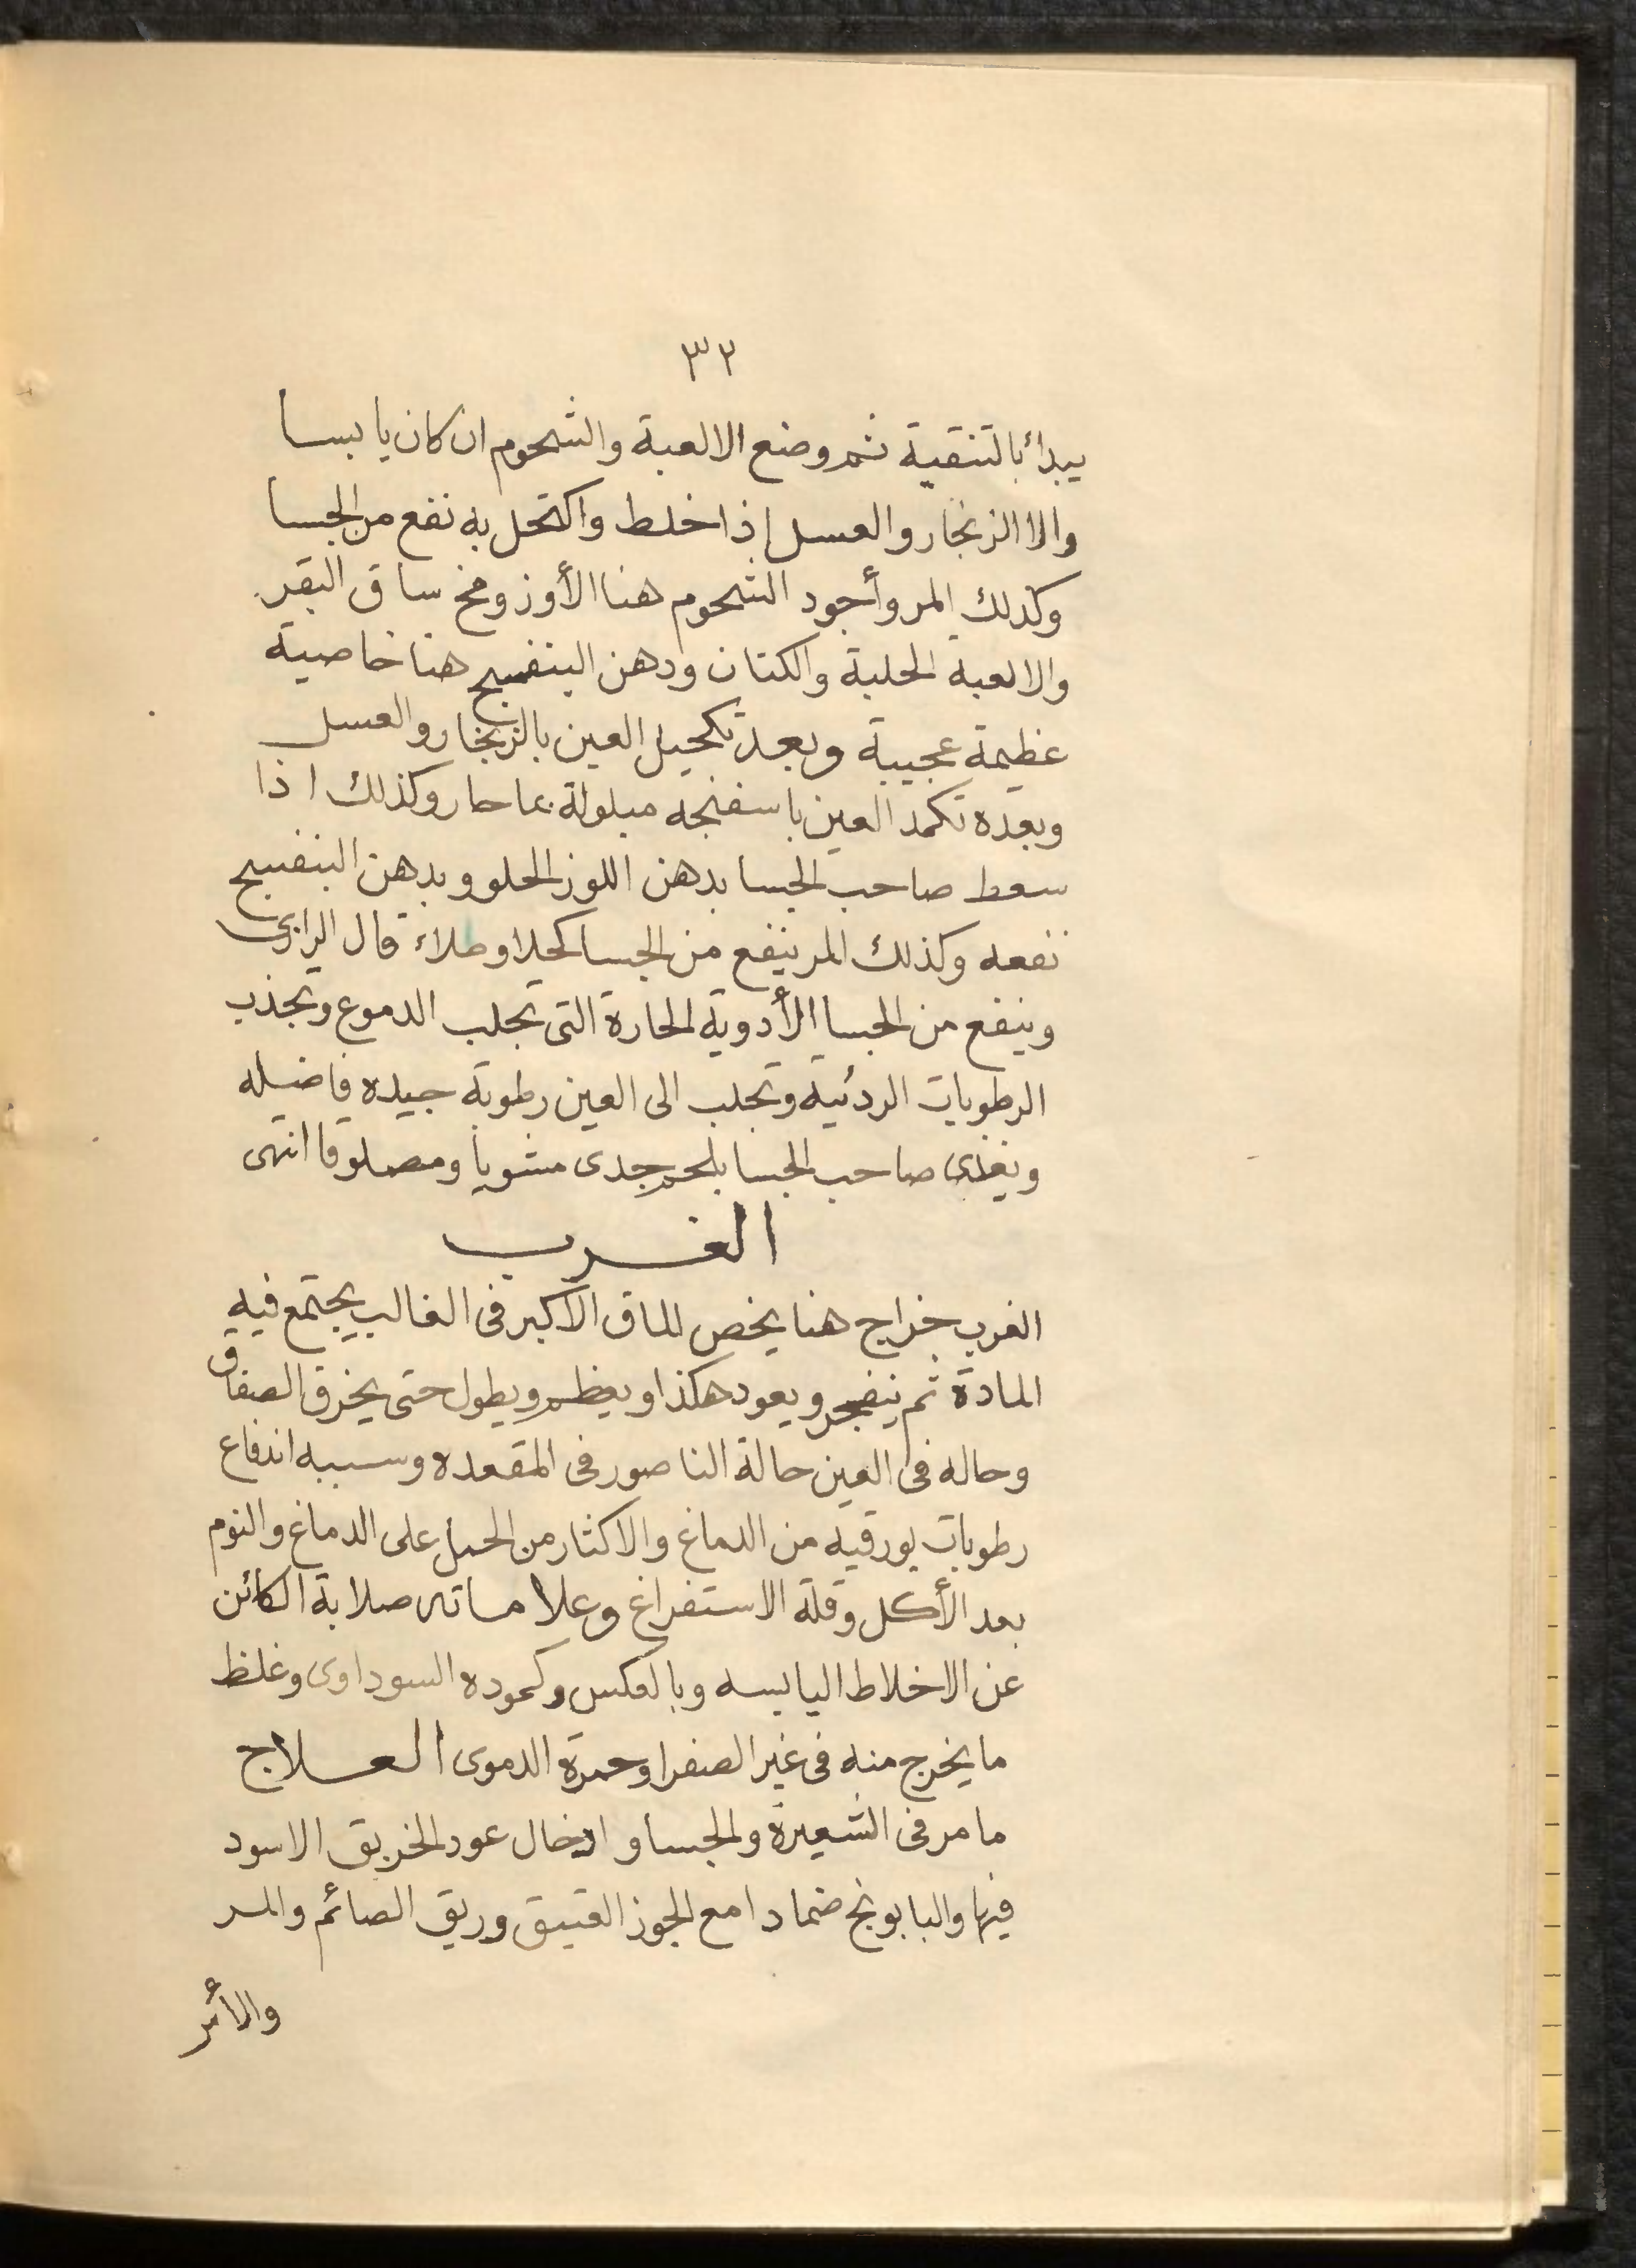 ٣٢
يبدأ بالتنقية ثم وضع الالعبة والشحوم ان كان يابسا
والا الزنجار والعسل إذا خلط واكتحل به نفع من الجسا
وكذلك المر وأجود الشحوم هنا الأوز ومخ ساق البقر
والالعبة الحلبة والكتان ودهن البنفسج هنا خاصية
عظيمة عجيبة وبعد تكحيل العين بالزنجار والعسل
وبعده تكمد العين باسفنجه مبلولة بما حار وكذلك اذا
سعط صاحب الجسا بدهن اللوز الحلو وبدهن البنفسج
نفعه وكذلك المر ينفع من الجسا كحلا وطلاء قال الرازى
وينفع من الجسا الأدوية الحارة التى تجلب الدموع وتجذب
الرطوبات الردئية وتجلب الى العين رطوبة جيده فاضله
ويغذى صاحب الجسا بلحم جدى مشويا ومصلوقا انتهى
الغرب
الغرب خراج هنا يخص الماق الأكبر فى الغالب يجتمع فيه
المادة ثم ينفجر ويعود هكذا ويعظم ويطول حتى يخرق الصفاق
وحاله فى العين حالة الناصور فى المقعده وسببه اندفاع
رطوبات بورقيه من الدماغ والاكثار من الحمل على الدماغ والنوم
بعد الأكل وقلة الاستفراغ وعلاماته صلابة الكائن
عن الاخلاط اليابسه وبالعكس وكموده السوداوى وغلظ
ما يخرج منه فى غير الصفرا وحمرة الدموى العلاج
ما مر فى الشعيرة والجسا و ادخال عود الخربق الاسود
فيها والبابونج ضمادا مع الجوز العتيق وريق الصائم والمر